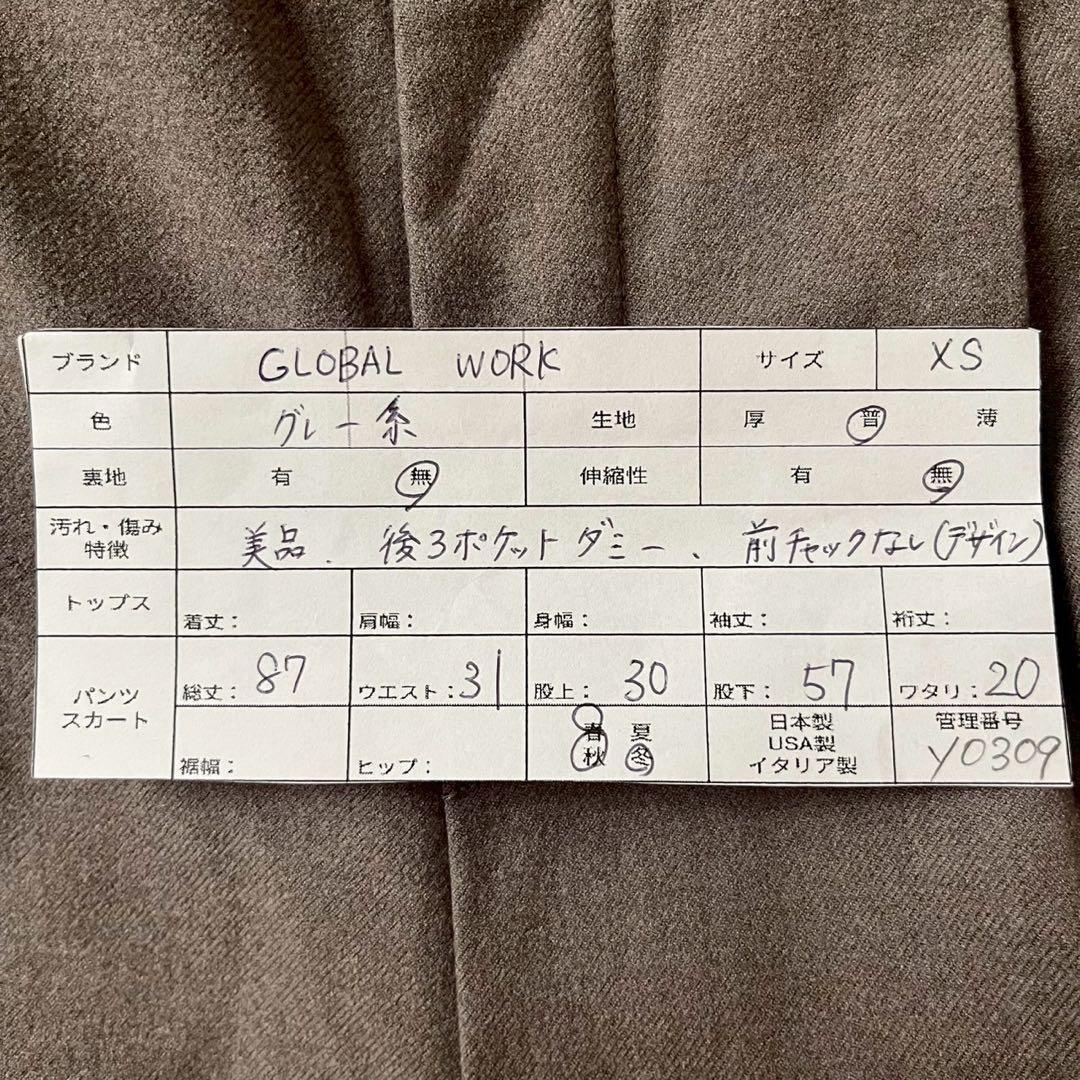 ブランド GLOBAL WORK サイズ XS
色 グレー系 生地 厚 普 薄
裏地 有 無 伸縮性 有 無
汚れ・傷み
特徴 美品、後3ポケットダミー、前チャックなし(デザイン)
トップス 着丈: 肩幅: 身幅: 袖丈: 裄丈:
パンツ
スカート 総丈: 87 ウエスト: 31 股上: 30 股下: 57 ワタリ: 20
裾幅: ヒップ: 春 夏
秋 冬
日本製
USA製
イタリア製
管理番号
Y0309